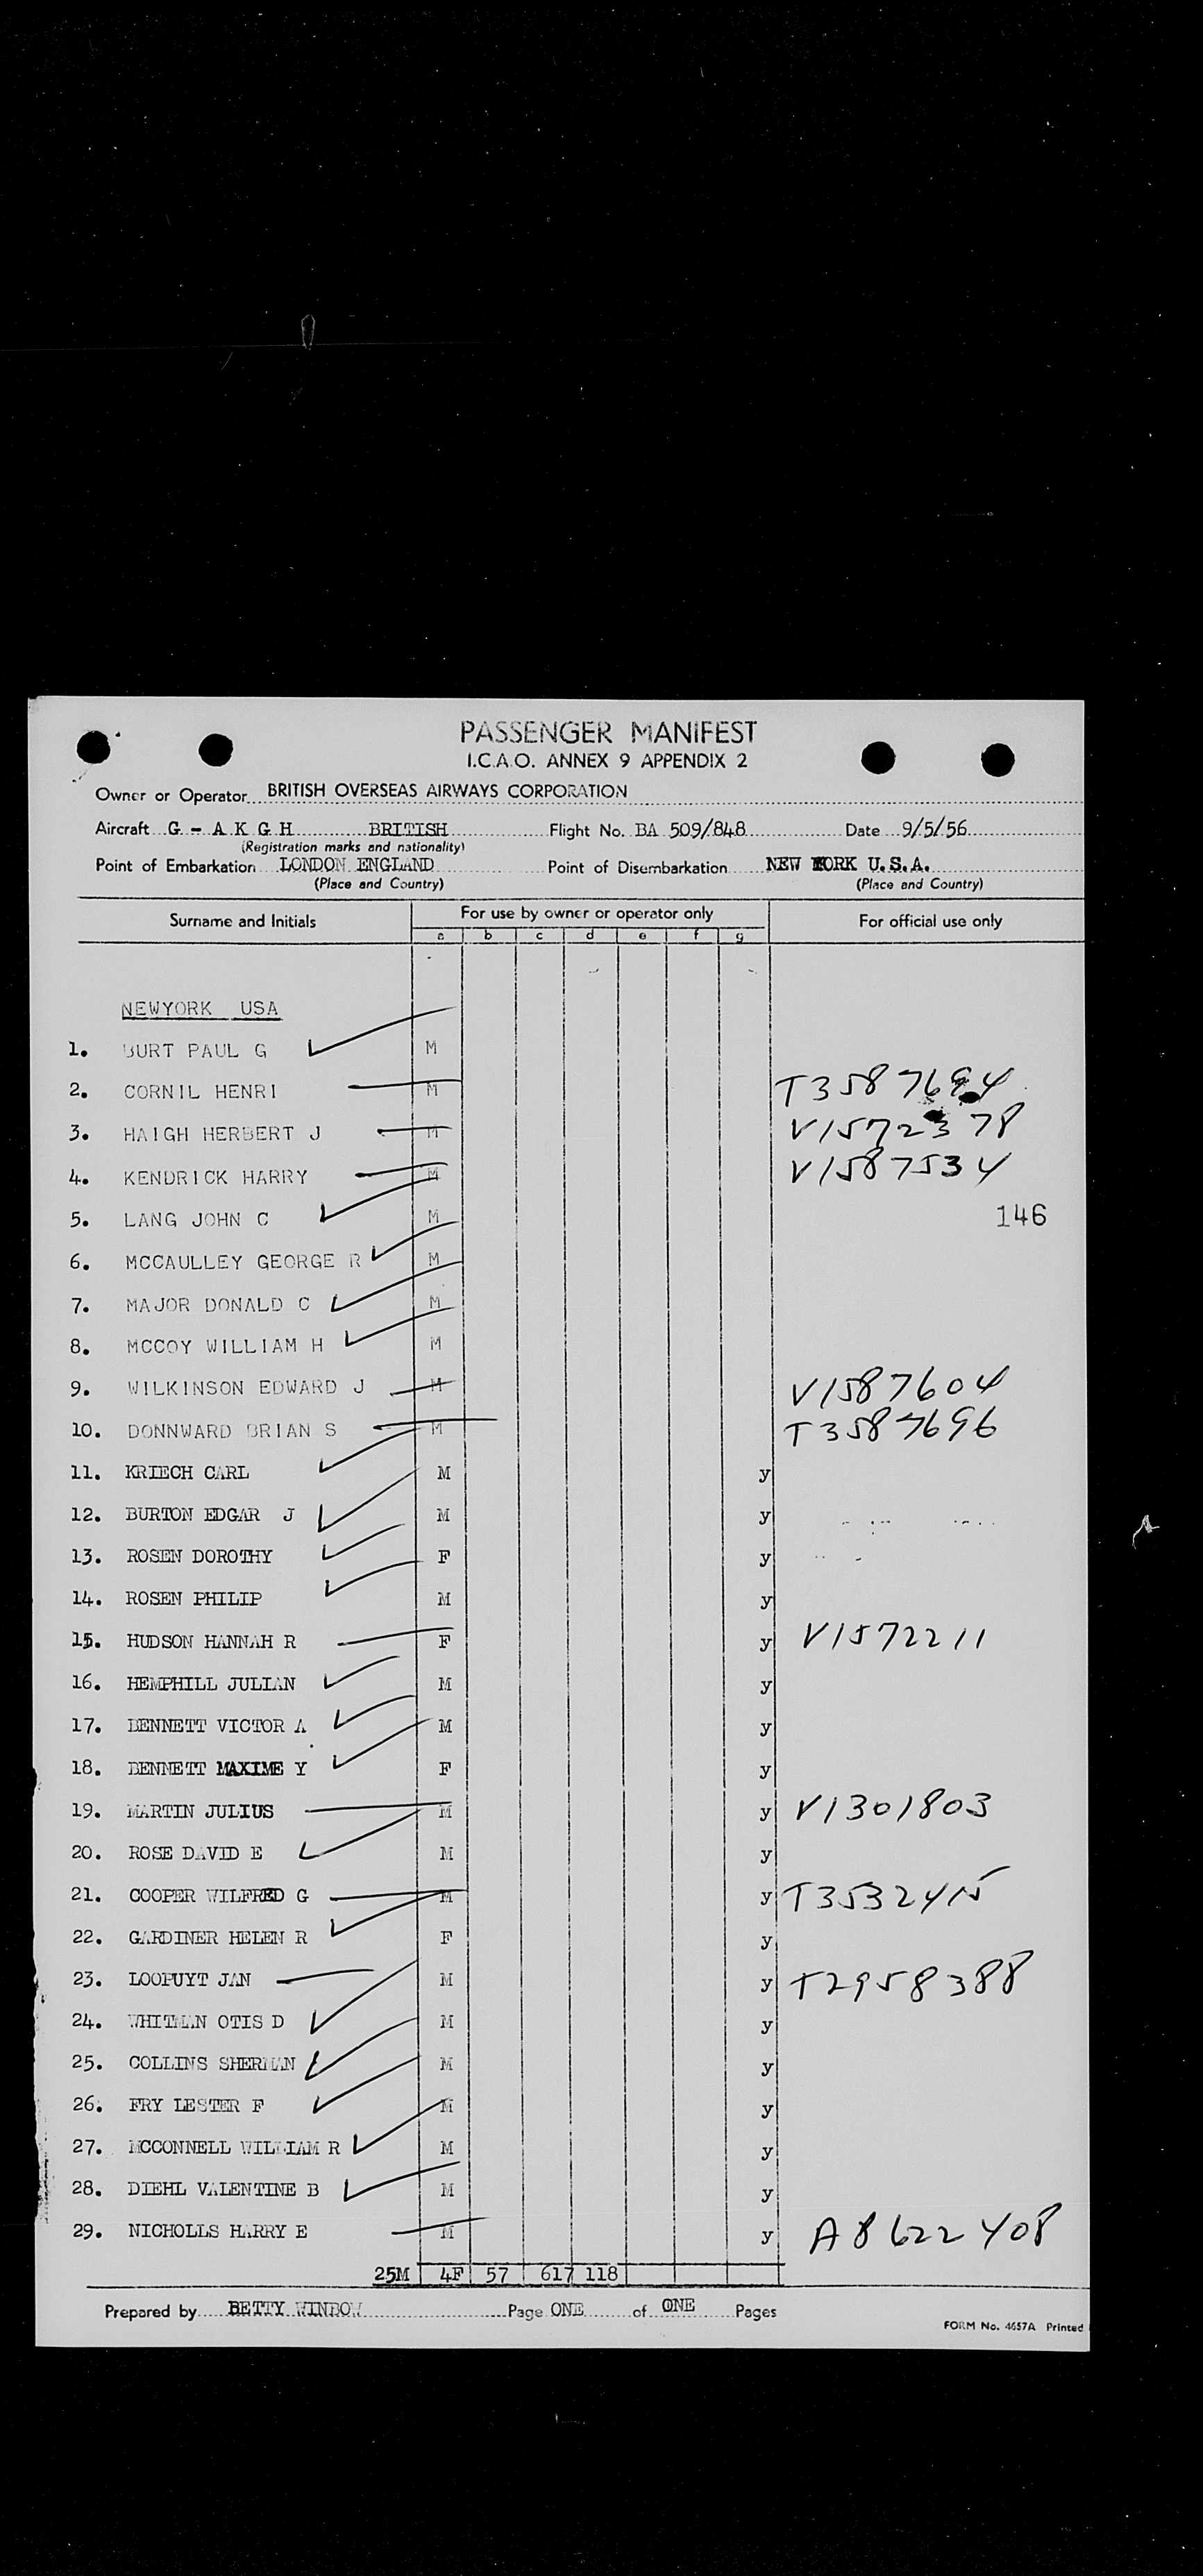 PASSENGER MANIFEST
I.C.A.O. ANNEX 9 APPENDIX 2
Owner or Operator BRITISH OVERSEAS AIRWAYS CORPORATION
Aircraft G - A K G H BRITISH Flight No. BA 509/848 Date 9/5/56
(Registration marks and nationality)
Point of Embarkation LONDON ENGLAND Point of Disembarkation NEW YORK U.S.A.
(Place and Country) (Place and Country)
Surname and Initials For use by owner or operator only For official use only
a b c d e f g
NEWYORK USA
1. BURT PAUL G M
2. CORNIL HENRI M T3587694
3. HAIGH HERBERT J M V1572378
4. KENDRICK HARRY M V1587534
5. LANG JOHN C M 146
6. MCCAULLEY GEORGE R M
7. MAJOR DONALD C M
8. MCCOY WILLIAM H M
9. WILKINSON EDWARD J M V1587604
10. DONNWARD BRIAN S M T3587696
11. KRIECH CARL M y
12. BURTON EDGAR J M y
13. ROSEN DOROTHY F y
14. ROSEN PHILIP M y
15. HUDSON HANNAH R F y V1572211
16. HEMPHILL JULIAN M y
17. BENNETT VICTOR A M y
18. BENNETT MAXIME Y F y
19. MARTIN JULIUS M y V1301803
20. ROSE DAVID E M y
21. COOPER WILFRED G M y T3532415
22. GARDINER HELEN R F y
23. LOOPUYT JAN M y T2958388
24. WHITMAN OTIS D M y
25. COLLINS SHERMAN M y
26. FRY LESTER F M y
27. MCCONNELL WILLIAM R M y
28. DIEHL VALENTINE B M y
29. NICHOLLS HARRY E M y A8622408
25M 4F 57 617 118
Prepared by BETTY WINBOW Page ONE of ONE Pages
FORM No. 4657A Printed